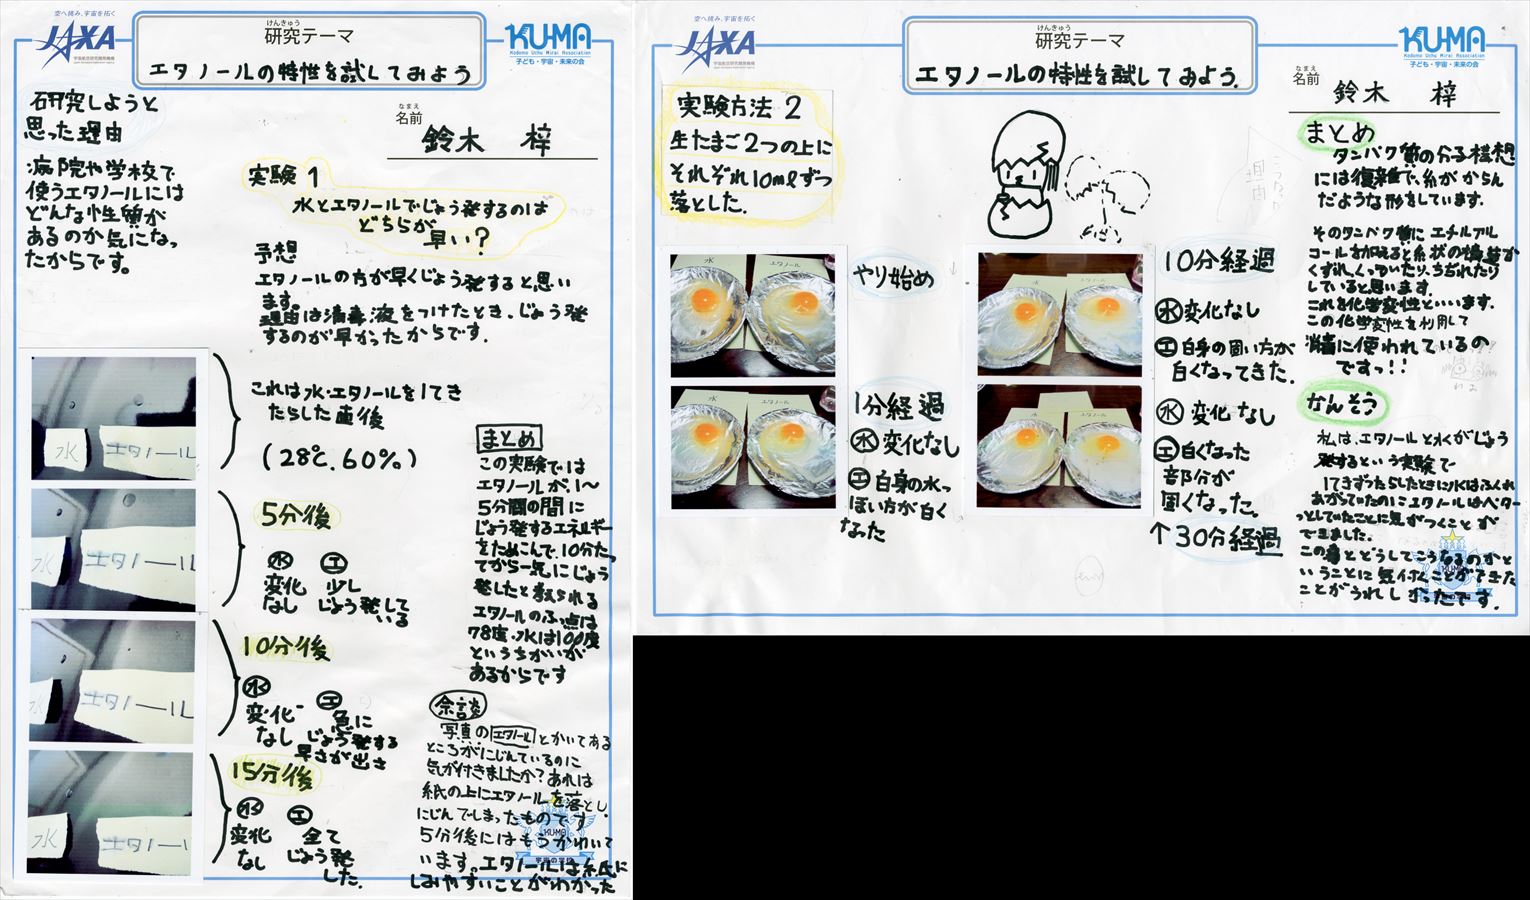 空へ挑み、宇宙を拓く
JAXA
宇宙航空研究開発機構
けんきゅう
研究テーマ
エタノールの特性を試してみよう
KU-MA
Kodomo Uchu Mirai Association
子ども・宇宙・未来の会
研究しようと
思った理由
病院や学校で
使うエタノールには
どんな性質が
あるのか気になっ
たからです。
なまえ
名前
鈴木 梓
実験1
水とエタノールでじょう発するのは
どちらが
早い?
予想
エタノールの方が早くじょう発すると思い
ます。
理由は消毒液をつけたとき、じょう発
するのが早かったからです。
水
エタノール
これは水・エタノールを1てき
たらした直後
(28℃.60%)
水
エタノール
5分後
水
変化
なし
エ
少し
じょう発して
いる
水
エタノール
10分後
水
変化
なし
エ
急に
じょう発する
早さが出さ
水
エタノール
15分後
水
変化
なし
エ
全て
じょう発
した.
まとめ
この実験では
エタノールが、1〜
5分間の間に
じょう発するエネルギー
をためこんで、10分たっ
てから一気にじょう
発したと考えられる
エタノールのふっ点は
78度、水は100度
というちがいが
あるからです
余談
写真のエタノールとかいてある
ところがにじんでいるのに
気が付きましたか?あれは
紙の上にエタノールを落とし
にじんでしまったものです
5分後にはもうかわいて
います。エタノールは紙に
しみやすいことがわかった
KUMA
宇宙の学校
空へ挑み、宇宙を拓く
JAXA
宇宙航空研究開発機構
けんきゅう
研究テーマ
エタノールの特性を試してみよう.
KU-MA
Kodomo Uchu Mirai Association
子ども・宇宙・未来の会
なまえ
名前
鈴木 梓
実験方法2
生たまご2つの上に
それぞれ10mlずつ
落とした.
水
エタノール
やり始め
水
エタノール
1分経過
水 変化なし
エ 白身の水っ
ぽい方が白く
なった
水
エタノール
10分経過
水 変化なし
エ 白身の固い方が
白くなってきた.
水
エタノール
水 変化なし
エ 白くなった
部分が
固くなった.
↑30分経過
まとめ
タンパク質の分子構想
には複雑で、糸がからん
だような形をしています.
そのタンパク質にエチルアル
コールを加えると糸状の構造が
くずれ、くっついたり、ちぎれたり
していると思います.
これを化学変性といいます.
この化学変性を利用して
消毒に使われているの
ですっ!!
かんそう
私は、エタノールと水がじょう
発するという実験で
1てきずつたらしたときに水はふくれ
あがっていたのにエタノールはベター
っとしていたことに気がつくことが
できました.
この事とどうしてこうなるのかと
いうことに気付くことができた
ことがうれしかったです.